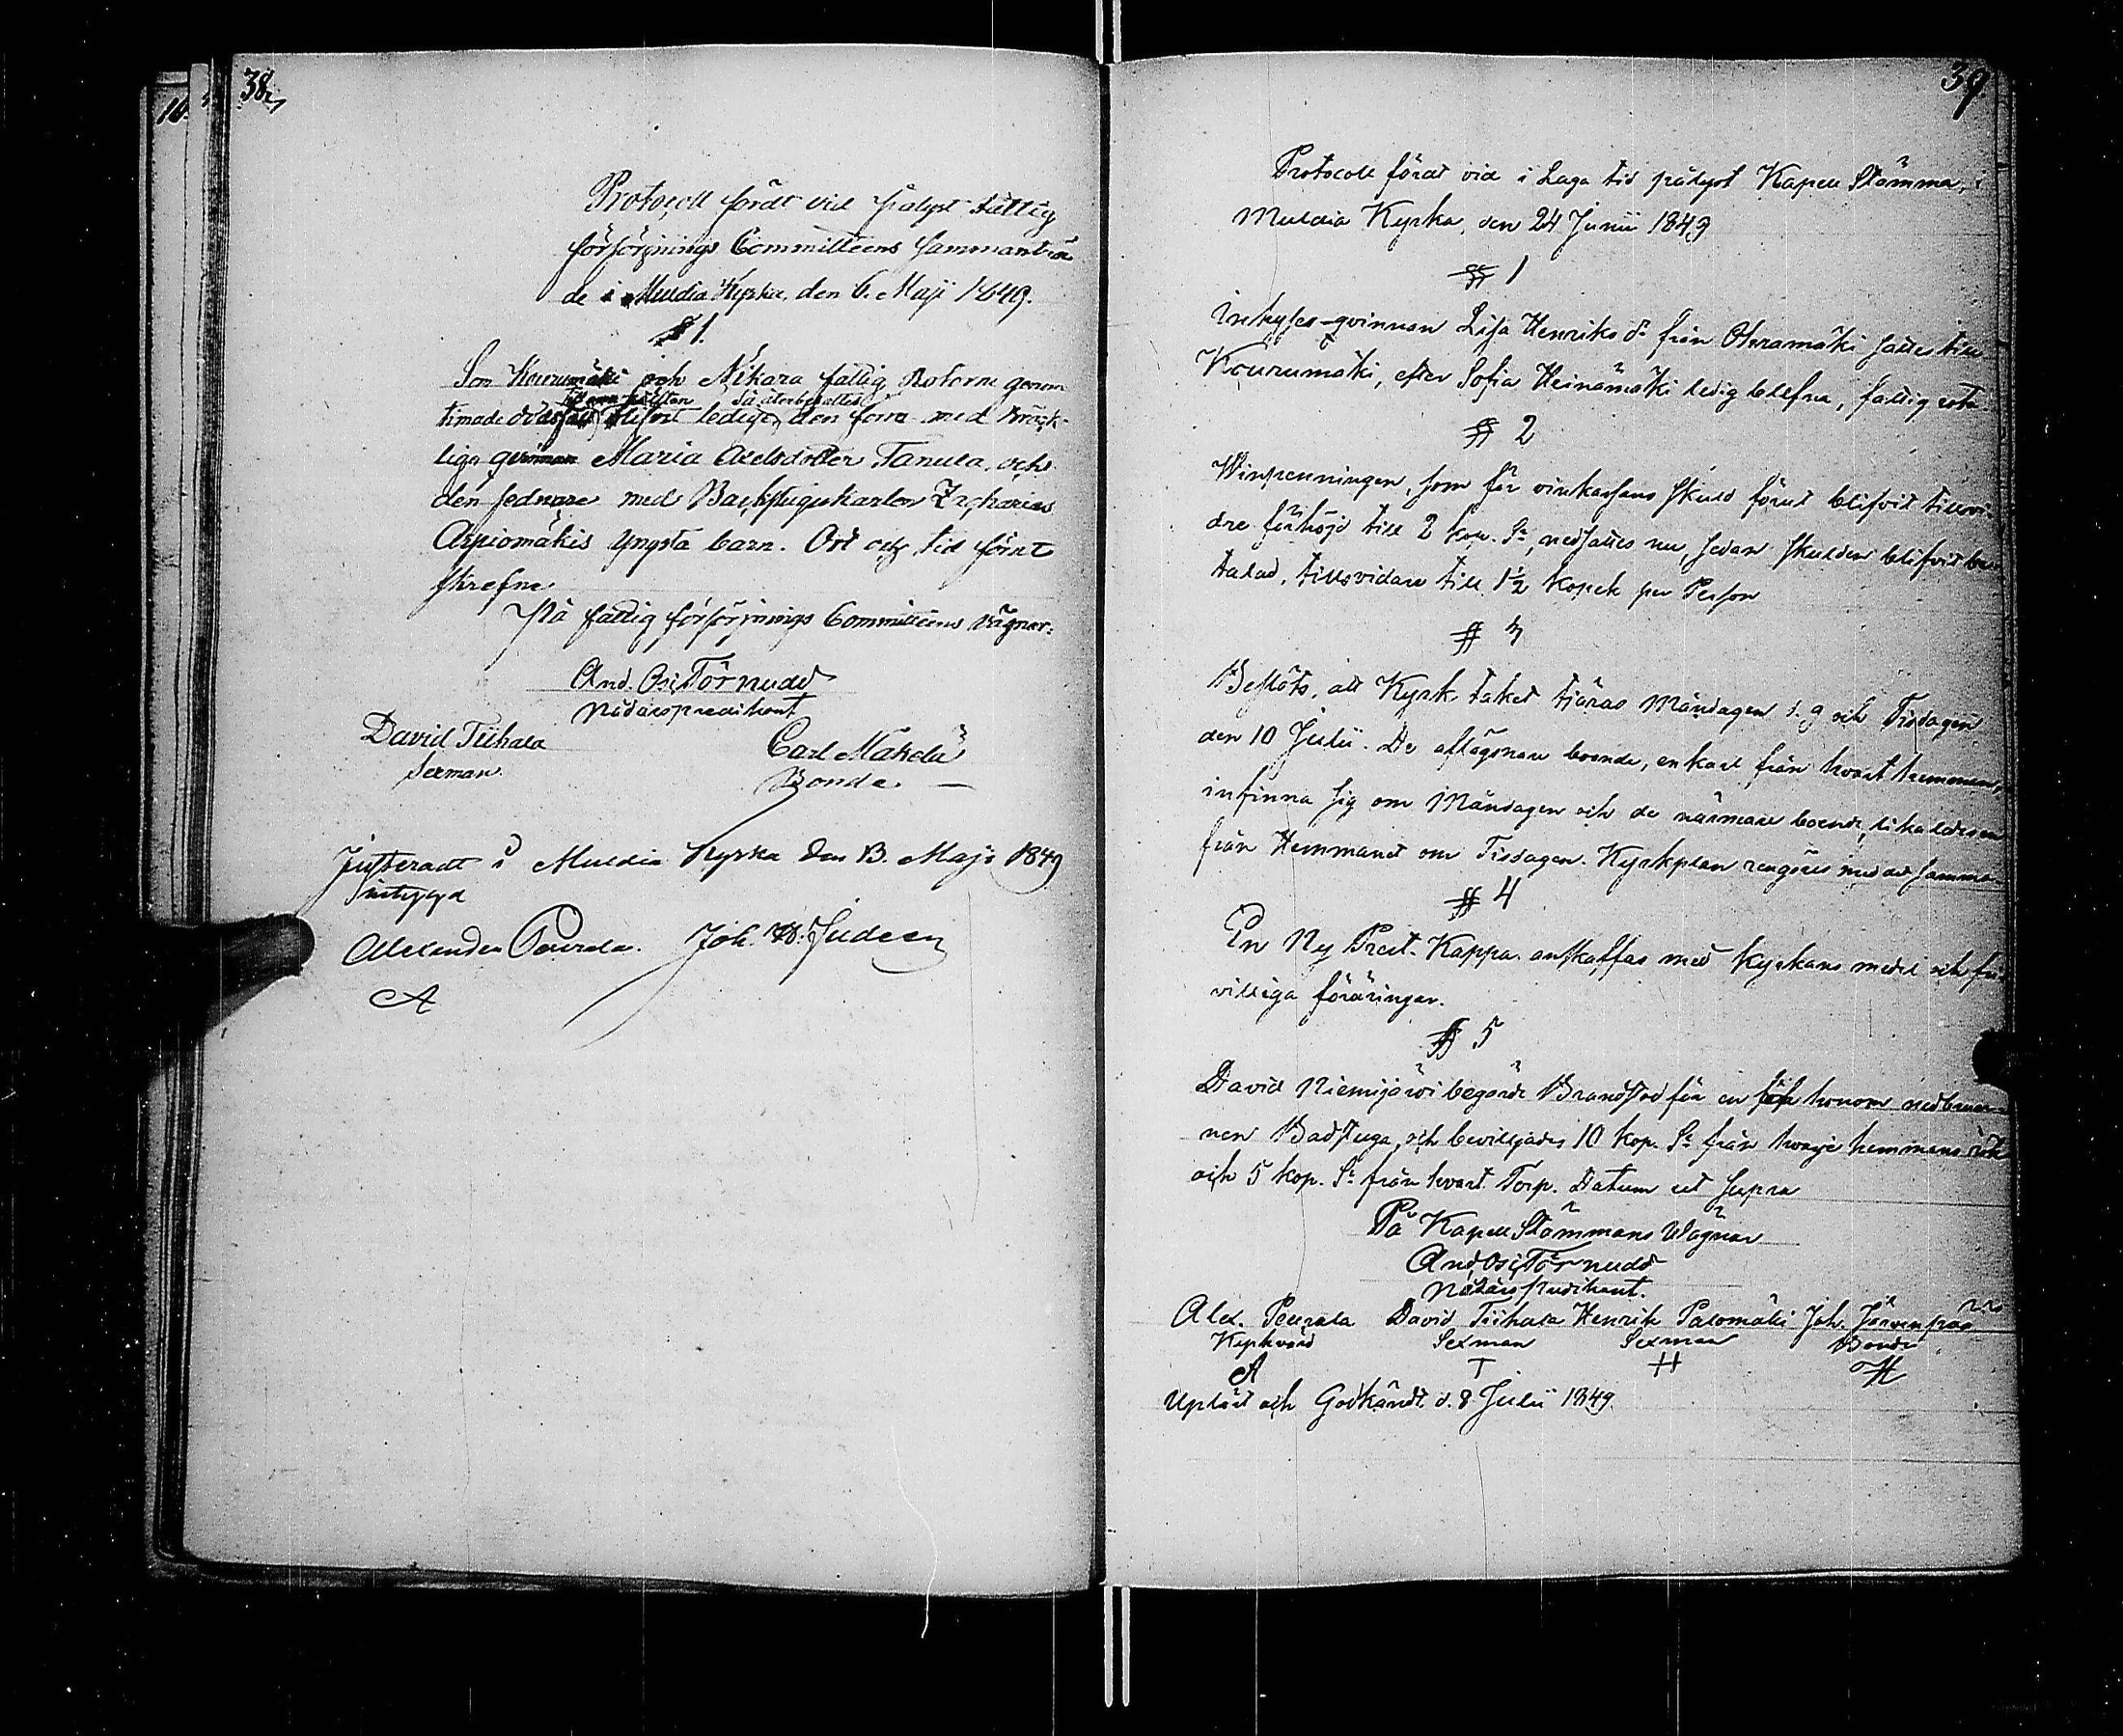 38.
Protocoll fördt vid pålyst fattig
försörjnings Committéens sammanträ
de i Muldia Kyrka, den 6. Maji 1849.
§ 1.
Son Kourumäki och Nikara fattig Rotorne genom
till ena hälften så återbesattes
timade dödsfall blifvit lediga, den förra med bräck-
liga qvinnan Maria Axelsdotter Tanula, och
den sednare med Backstugukarlen Zacharias
Arpiomäkis yngsta barn. Ort och tid förut
skrefne.
På fattig försörjnings Committéens vägnar:
And. Osi. Törnudd
Nådårspredikant
David Tiihala
Sexman.
Carl Mäkelä
Bonde.
Justeradt i Muldia Kyrka den 13. Maji 1849
intyga
Alexander Peurala. Joh. W. Judeen
A
39
Protocoll fördt vid i Laga tid pålyst Kapell Stämma, i
Muldia Kyrka, den 24 Junii 1849
§ 1
Inhyses-qvinnan Lisa Henriks dr från Oteramäki sattes till
Kourumäki, efter Sofia Heinämäki ledig blefna, fattig rota.
§ 2
Winpenningen, som för vinkassans skuld förut blifvit tillsvi-
dre förhöjd till 2 kop. Sr, nedsattes nu, sedan skulden blifvit be-
talad, tillsvidare till 1½ kopek per Person
§ 3
Beslöts, att Kyrk taket tjäras Måndagen d. 9 och Tisdagen
den 10 Julii. De aflägsnare boende, en karl från hvart hemman,
infinna sig om Måndagen och de närmare boende, likaledes en
från Hemmanet om Tisdagen. Kyrkplan rengöres med det samma
§ 4
En Ny Prest-Kappa anskaffas med Kyrkans medel och fri-
villiga föräringar.
§ 5
David Niemijärvi begärde Brandstod för en honom nedbrun-
nen Badstuga, och bevilljades 10 kop. Sr från hvarje hemmans rök
och 5 kop. Sr från hvart Torp. Datum ut supra
På Kapell Stämmans Wägnar
And. Osi. Törnudd
Nådårspredikant.
Alex. Peurala David Tiihala Henrik Palomäki Joh. Järvenpää
Kyrkvärd Sexman Sexman Bonde
A T H H
Upläst och Godkändt d. 8 Julii 1849.